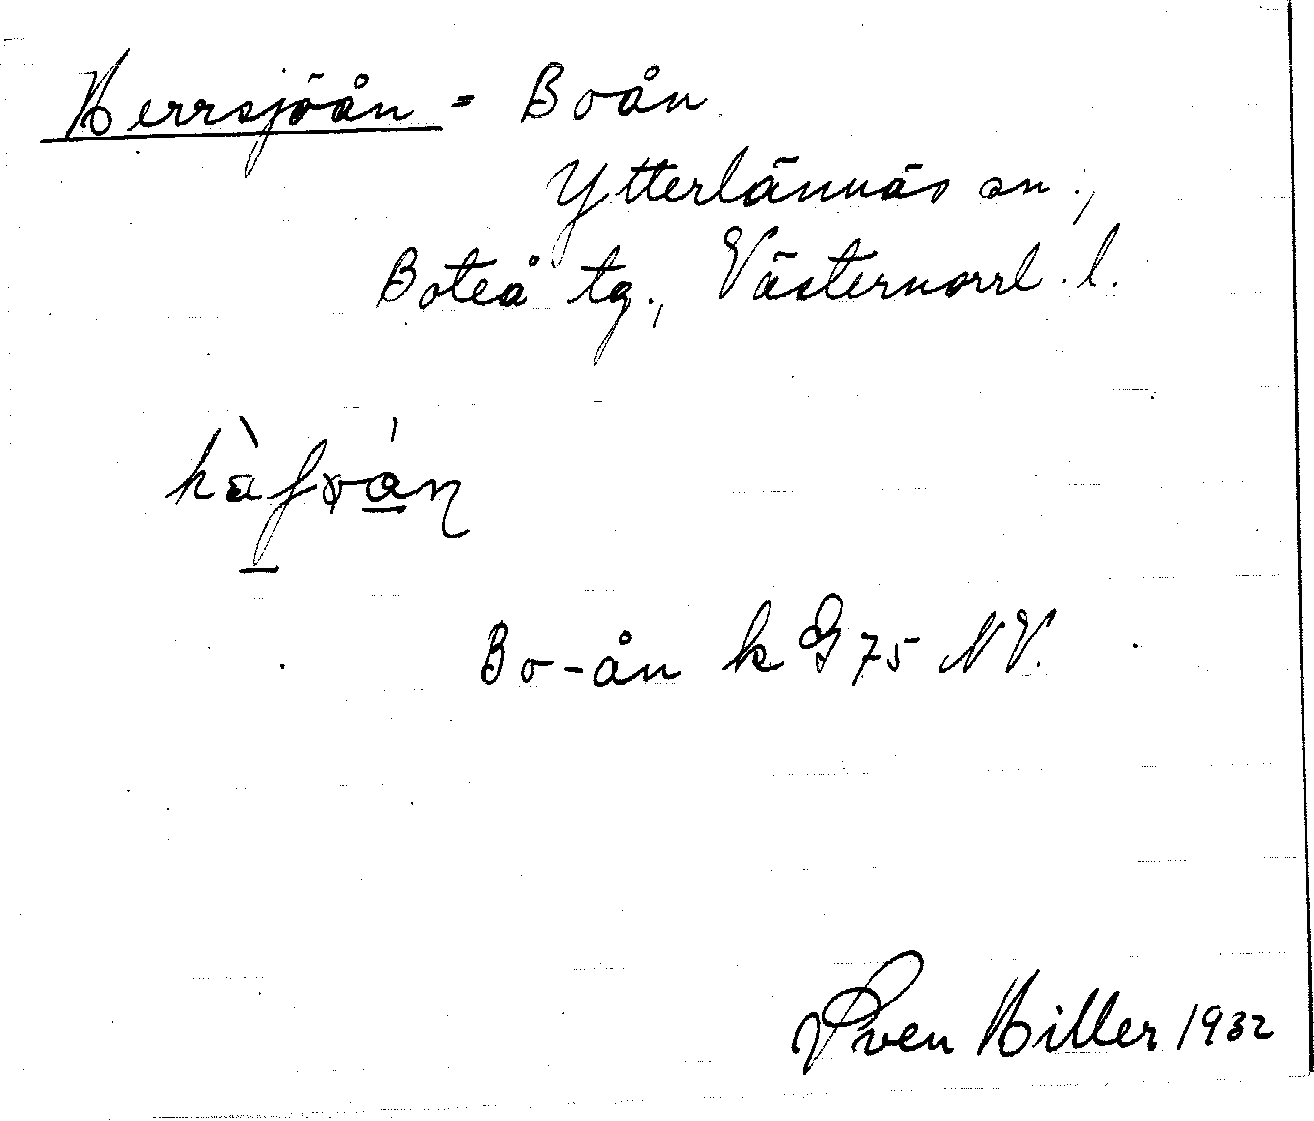 Herrsjöån = Boån
Ytterlännäs sn.,
Boteå tg., Västernorrl. l.
Bo-ån k G 75 NV.
Sven Hiller 1932